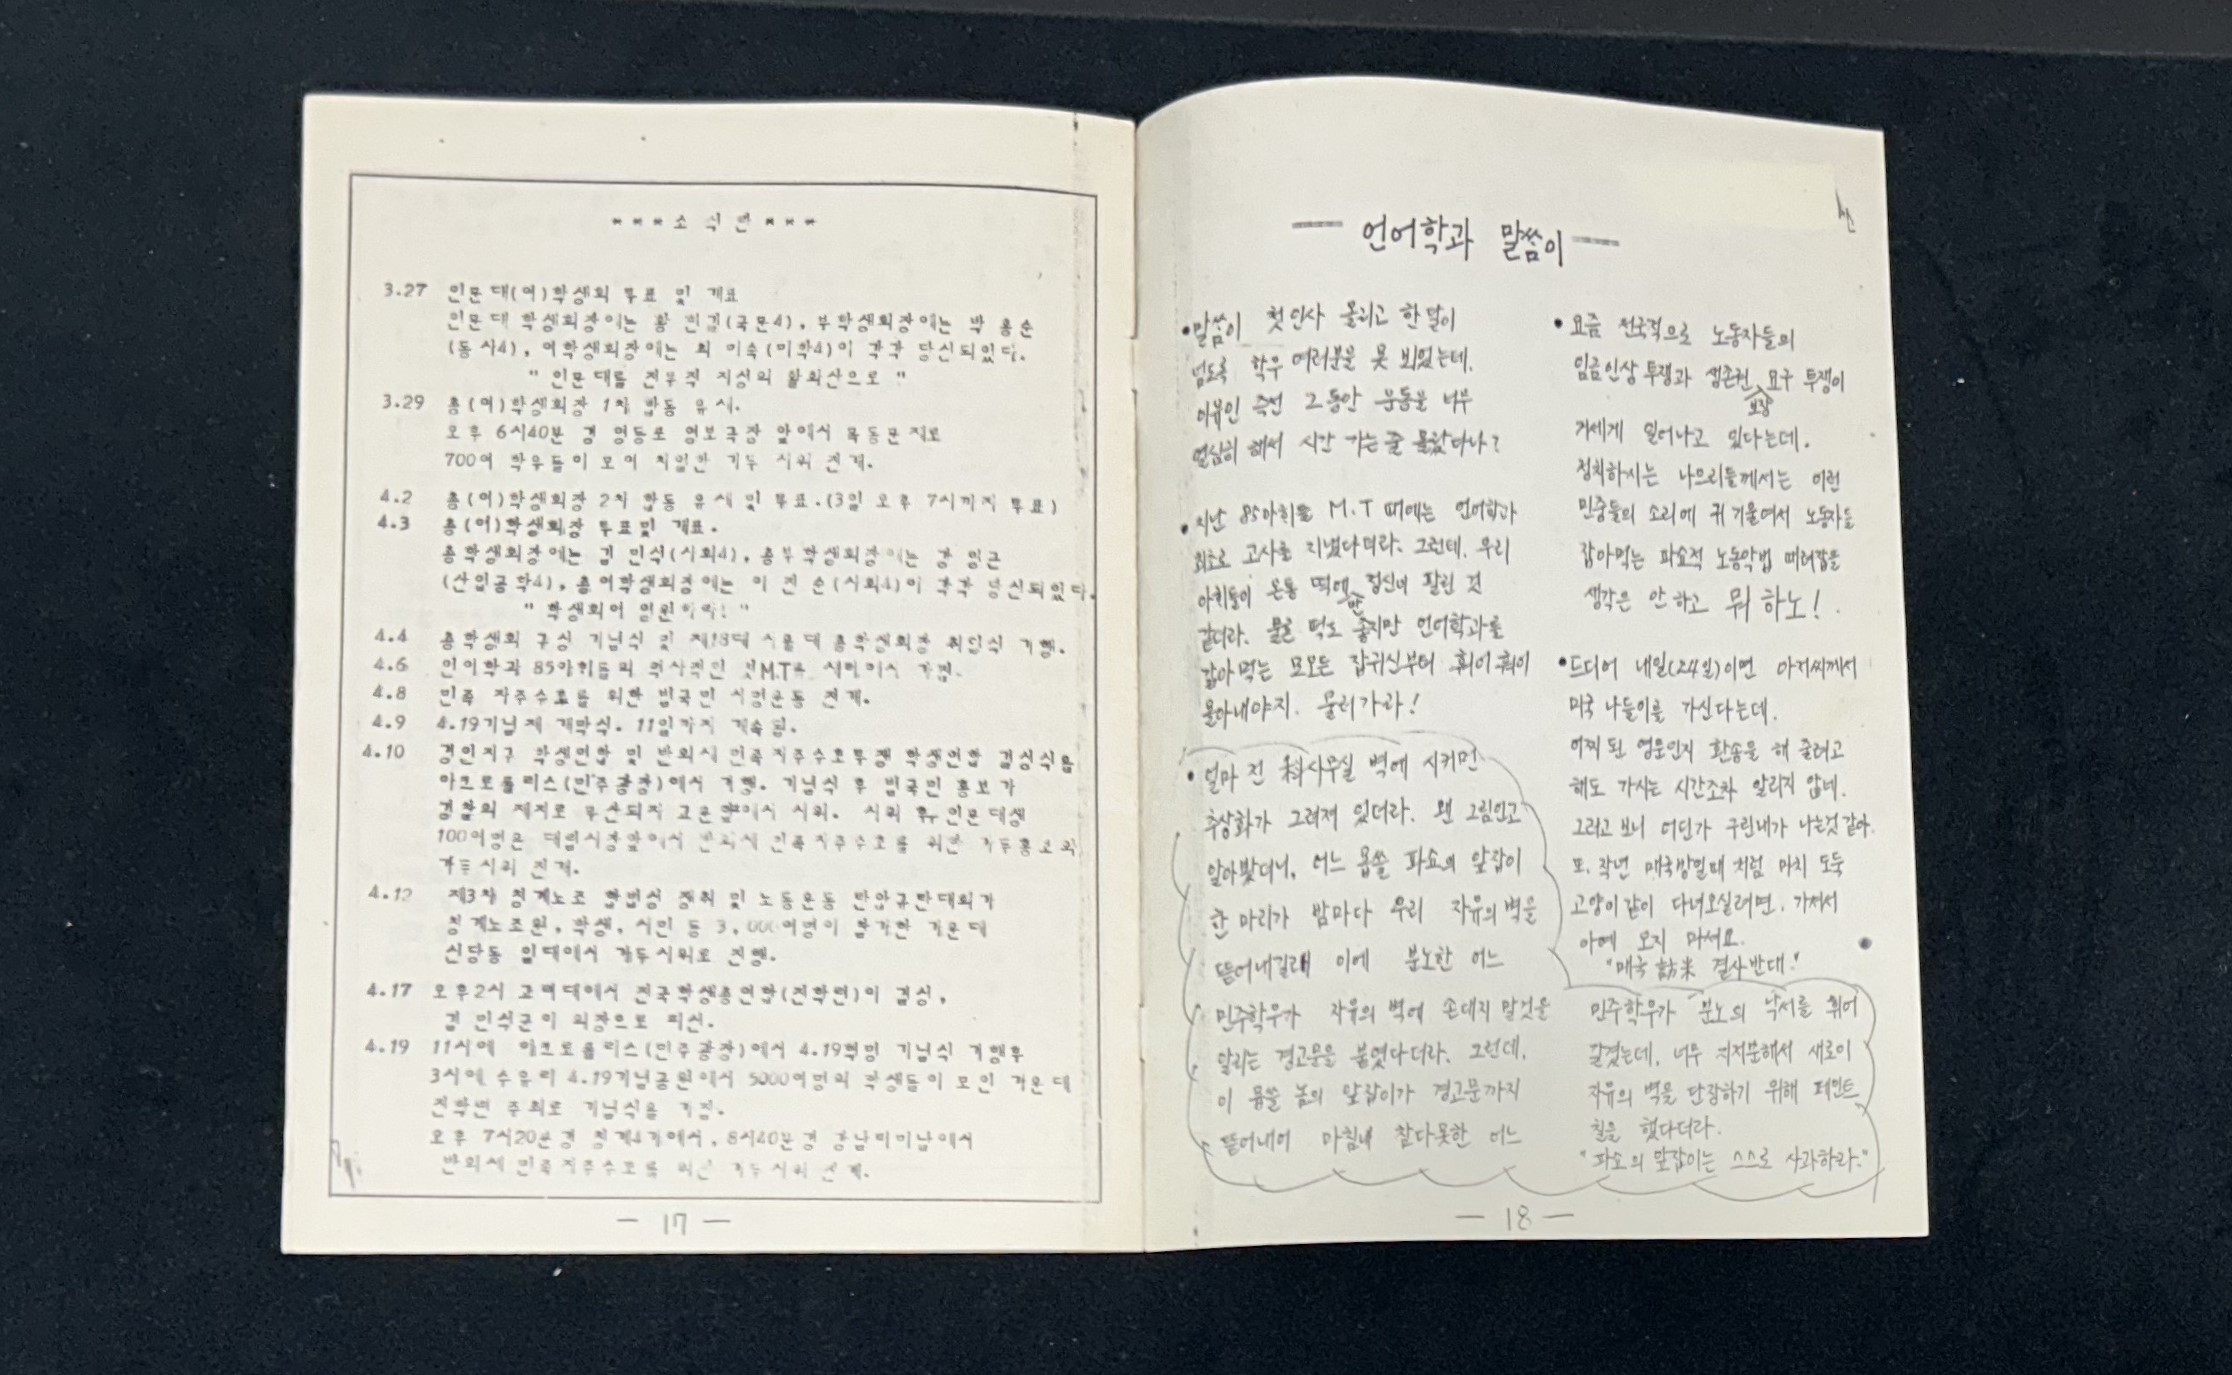 ***소식란***
3.27 인문대(여)학생회 투표 및 개표
인문대 학생회장에는 황 인길(국문4), 부학생회장에는 박 홍순
(동사4), 여학생회장에는 최 미숙(미학4)이 각각 당선되었다.
" 인문대를 전투적 지성의 활화산으로 "
3.29 총(여)학생회장 1차 합동 유세.
오후 6시40분 경 영등포 영보극장 앞에서 목동문제로
700여 학우들이 모여 치열한 가두 시위 전개.
4.2 총(여)학생회장 2차 합동 유세 및 투표.(3일 오후 7시까지 투표)
4.3 총(여)학생회장 투표및 개표.
총학생회장에는 김 민석(사회4), 총부학생회장에는 강
(산업공학4), 총여학생회장에는 이 진 순(사회4)이 각각 당선되었다.
" 학생회여 영원하라! "
4.4 총학생회 구성 기념식 및 제18대 서울대 총학생회장 취임식 거행.
4.6 언어학과 85아해들의 역사적인 첫M.T를 새터에서 가짐.
4.8 민족 자주수호를 위한 범국민 서명운동 전개.
4.9 4.19기념제 개막식. 11일까지 계속됨.
4.10 경인지구 학생연합 및 반외세 민족자주수호투쟁 학생연합 결성식을
아크로폴리스(민주광장)에서 거행. 기념식 후 범국민 홍보가
경찰의 제지로 무산되자 교문앞에서 시위. 시위 후, 인문대생
100여명은 대림시장앞에서 반외세 민족자주수호를 위한 가두홍보와
가두시위 전개.
4.12 제3차 청계노조 합법성 쟁취 및 노동운동 탄압규탄대회가
청계노조원, 학생, 시민 등 3,000여명이 참가한 가운데
신당동 일대에서 가두시위로 진행.
4.17 오후2시 고려대에서 전국학생총연합(전학련)이 결성,
김 민석군이 의장으로 피선.
4.19 11시에 아크로폴리스(민주광장)에서 4.19혁명 기념식 거행후
3시에 수유리 4.19기념공원에서 5000여명의 학생들이 모인 가운데
전학련 주최로 기념식을 가짐.
오후 7시20분경 청계4가에서, 8시40분경 강남미미남에서
반외세 민족자주수호를 위한 가두시위 전개.
— 17 —
— 언어학과 말씀이 —
• 말씀이 첫인사 올리고 한달이
넘도록 학우 여러분을 못 뵈었는데,
이유인 즉슨 그동안 운동을 너무
열심히 해서 시간 가는 줄 몰랐다나?
• 지난 85아해들 M.T 때에는 언어학과
최초로 고사를 지냈다더라. 그런데, 우리
아해들이 온통 떡에만 정신이 팔린 것
같더라. 물론 떡도 좋지만 언어학과를
갉아먹는 모모든 잡귀신부터 훠이 훠이
몰아내야지. 물러가라!
• 얼마 전 科사무실 벽에 시커먼
추상화가 그려져 있더라. 웬 그림인고
알아봤더니, 어느 몹쓸 파쇼의 앞잡이
한 마리가 밤마다 우리 자유의 벽을
뜯어내길래 이에 분노한 어느
민주학우가 자유의 벽에 손대지 말것을
알리는 경고문을 붙였다더라. 그런데,
이 몹쓸 놈의 앞잡이가 경고문까지
뜯어내어 마침내 참다못한 어느
• 요즘 전국적으로 노동자들의
임금인상 투쟁과 생존권 보장 요구 투쟁이
거세게 일어나고 있다는데.
정치하시는 나으리들께서는 이런
민중들의 소리에 귀 기울여서 노동자들
잡아먹는 파쇼적 노동악법 때려잡을
생각은 안 하고 뭐 하노!
• 드디어 내일(24일)이면 아저씨께서
미국 나들이를 가신다는데.
어찌 된 영문인지 환송을 해 줄려고
해도 가시는 시간조차 알리지 않네.
그러고 보니 어딘가 구린내가 나는것 같아.
또, 작년 매국방일때 처럼 마치 도둑
고양이 같이 다녀오실려면, 가셔서
아예 오지 마세요.
"매국 訪米 결사반대!"
민주학우가 분노의 낙서를 휘어
갈겼는데, 너무 지저분해서 새로이
자유의 벽을 단장하기 위해 페인트
칠을 했다더라.
"파쇼의 앞잡이는 스스로 사과하라."
— 18 —